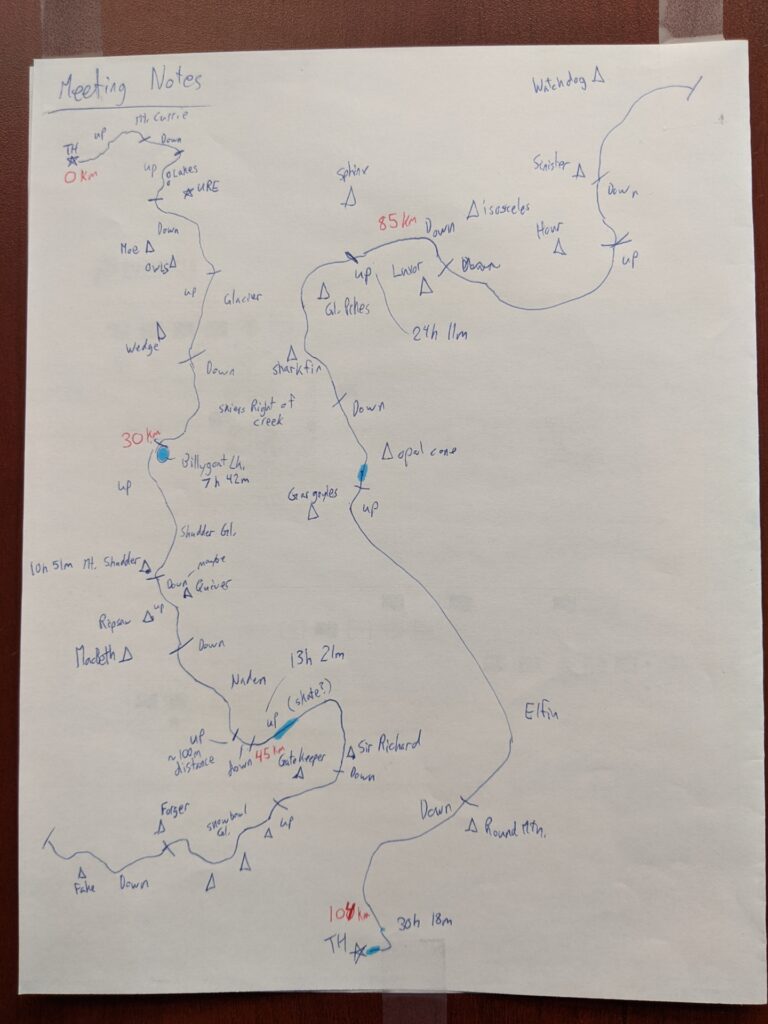 Meeting Notes
Mt. Currie
up
Down
TH
0 km
up
Lakes
URE
Down
Moe
Owls
up
Glacier
Wedge
Down
skiers Right of
creek
30 km
Billygoat Lk.
7h 42m
up
Shudder Gl.
10h 51m Mt. Shudder
Down
maybe
Quiver
Ripsaw
up
MacBeth
Down
Naden
13h 21m
(skate?)
up
up
~100m
distance
down
45 km
Gatekeeper
Sir Richard
Down
Forger
snowbowl
Gl.
up
Fake
Down
Watchdog
Sinister
Down
Sphinx
85 km
Down
isosceles
Hour
up
up
Luxor
Down
Gl. Pikes
24h 11m
sharkfin
Down
opal cone
Gargoyles
up
Elfin
Down
Round Mtn.
104 km
30h 18m
TH